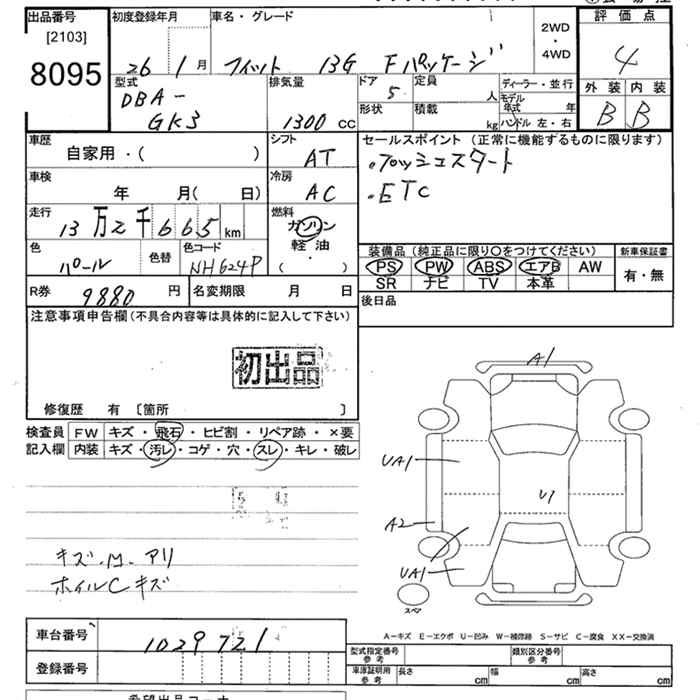 出品番号
[2103]
8095
初度登録年月
26 1 月
車名・グレード
フィット 13G Fパッケージ
2WD
・
4WD
評価点
4
外装 内装
B B
型式
DBA-
GK3
排気量
1300 CC
ドア 5
定員 人
形状
積載 kg
ディーラー・並行
モデル年式 年
ハンドル 左・右
車歴
自家用・( )
シフト
AT
セールスポイント (正常に機能するものに限ります)
.プッシュスタート
.ETC
車検
年 月( 日)
冷房
AC
走行
13万2千665 km
燃料
ガソリン
軽油
・
( )
色
パール
色替
色コード
NH624P
装備品 (純正品に限り○をつけてください)
PS PW ABS エアB AW
SR ナビ TV 本革
新車保証書
有・無
R券 9880 円
名変期限 月 日
後日品
注意事項申告欄 (不具合内容等は具体的に記入して下さい)
初出品
修復歴 有 〔箇所 〕
検査員
記入欄
FW キズ・飛石・ヒビ割・リペア跡・×要
内装 キズ・汚レ・コゲ・穴・スレ・キレ・破レ
キズ.M.アリ
ホイルCキズ
A1
UA1
U1
A2
UA1
スペア
A-キズ E-エクボ U-凹み W-補修跡 S-サビ C-腐食 XX-交換済
車台番号
1029721
登録番号
型式指定番号
参考
類別区分番号
参考
車庫証明用
参考
長さ cm
幅 cm
高さ cm
希望出品コーナー